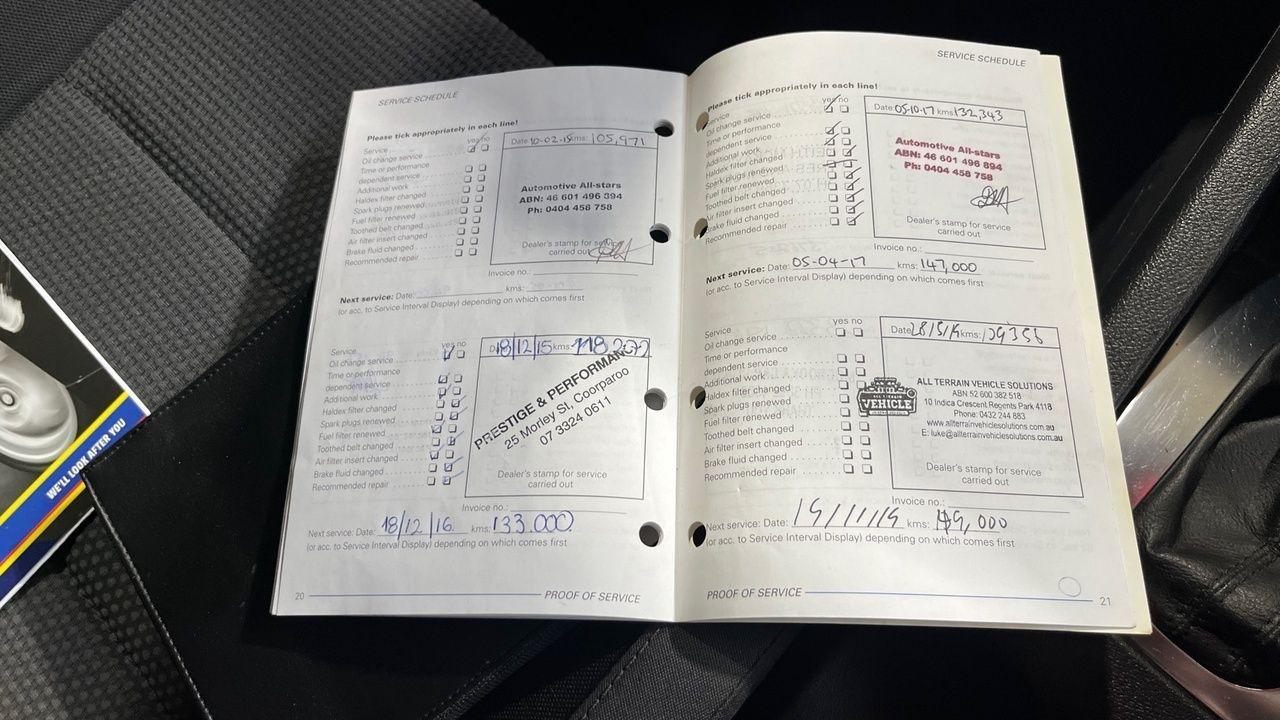 SERVICE SCHEDULE
Please tick appropriately in each line!
yes no
Service
Oil change service
Time or performance
dependent service
Additional work
Haldex filter changed
Spark plugs renewed
Fuel filter renewed
Toothed belt changed
Air filter insert changed
Brake fluid changed
Recommended repair
Date: 10-02-15 kms: 105,971
Automotive All-stars
ABN: 46 601 496 894
Ph: 0404 458 758
Dealer's stamp for service
carried out
Invoice no.:
Next service: Date: kms:
(or acc. to Service Interval Display) depending on which comes first
yes no
Service
Oil change service
Time or performance
dependent service
Additional work
Haldex filter changed
Spark plugs renewed
Fuel filter renewed
Toothed belt changed
Air filter insert changed
Brake fluid changed
Recommended repair
18/12/15 kms: 118
PRESTIGE & PERFORMANC
25 Morley St, Coorparoo
07 3324 0611
Dealer's stamp for service
carried out
Invoice no.:
Next service: Date: 18/12/16 kms: 133.000
(or acc. to Service Interval Display) depending on which comes first
20 PROOF OF SERVICE
SERVICE SCHEDULE
Please tick appropriately in each line!
yes no
Service
Oil change service
Time or performance
dependent service
Additional work
Haldex filter changed
Spark plugs renewed
Fuel filter renewed
Toothed belt changed
Air filter insert changed
Brake fluid changed
Recommended repair
Date: 05-10-17 kms: 132,343
Automotive All-stars
ABN: 46 601 496 894
Ph: 0404 458 758
Dealer's stamp for service
carried out
Invoice no.:
Next service: Date: 05-04-17 kms: 147,000
(or acc. to Service Interval Display) depending on which comes first
yes no
Service
Oil change service
Time or performance
dependent service
Additional work
Haldex filter changed
Spark plugs renewed
Fuel filter renewed
Toothed belt changed
Air filter insert changed
Brake fluid changed
Recommended repair
Date: kms:
ALL TERRAIN
VEHICLE
ALL TERRAIN VEHICLE SOLUTIONS
ABN 52 600 382 518
10 Indica Crescent Regents Park 4118
Phone: 0432 244 883
www.allterrainvehiclesolutions.com.au
E: luke@allterrainvehiclesolutions.com.au
Dealer's stamp for service
carried out
Invoice no.:
Next service: Date: 19/11/19 kms: 149,000
(or acc. to Service Interval Display) depending on which comes first
PROOF OF SERVICE 21
WE'LL LOOK AFTER YOU